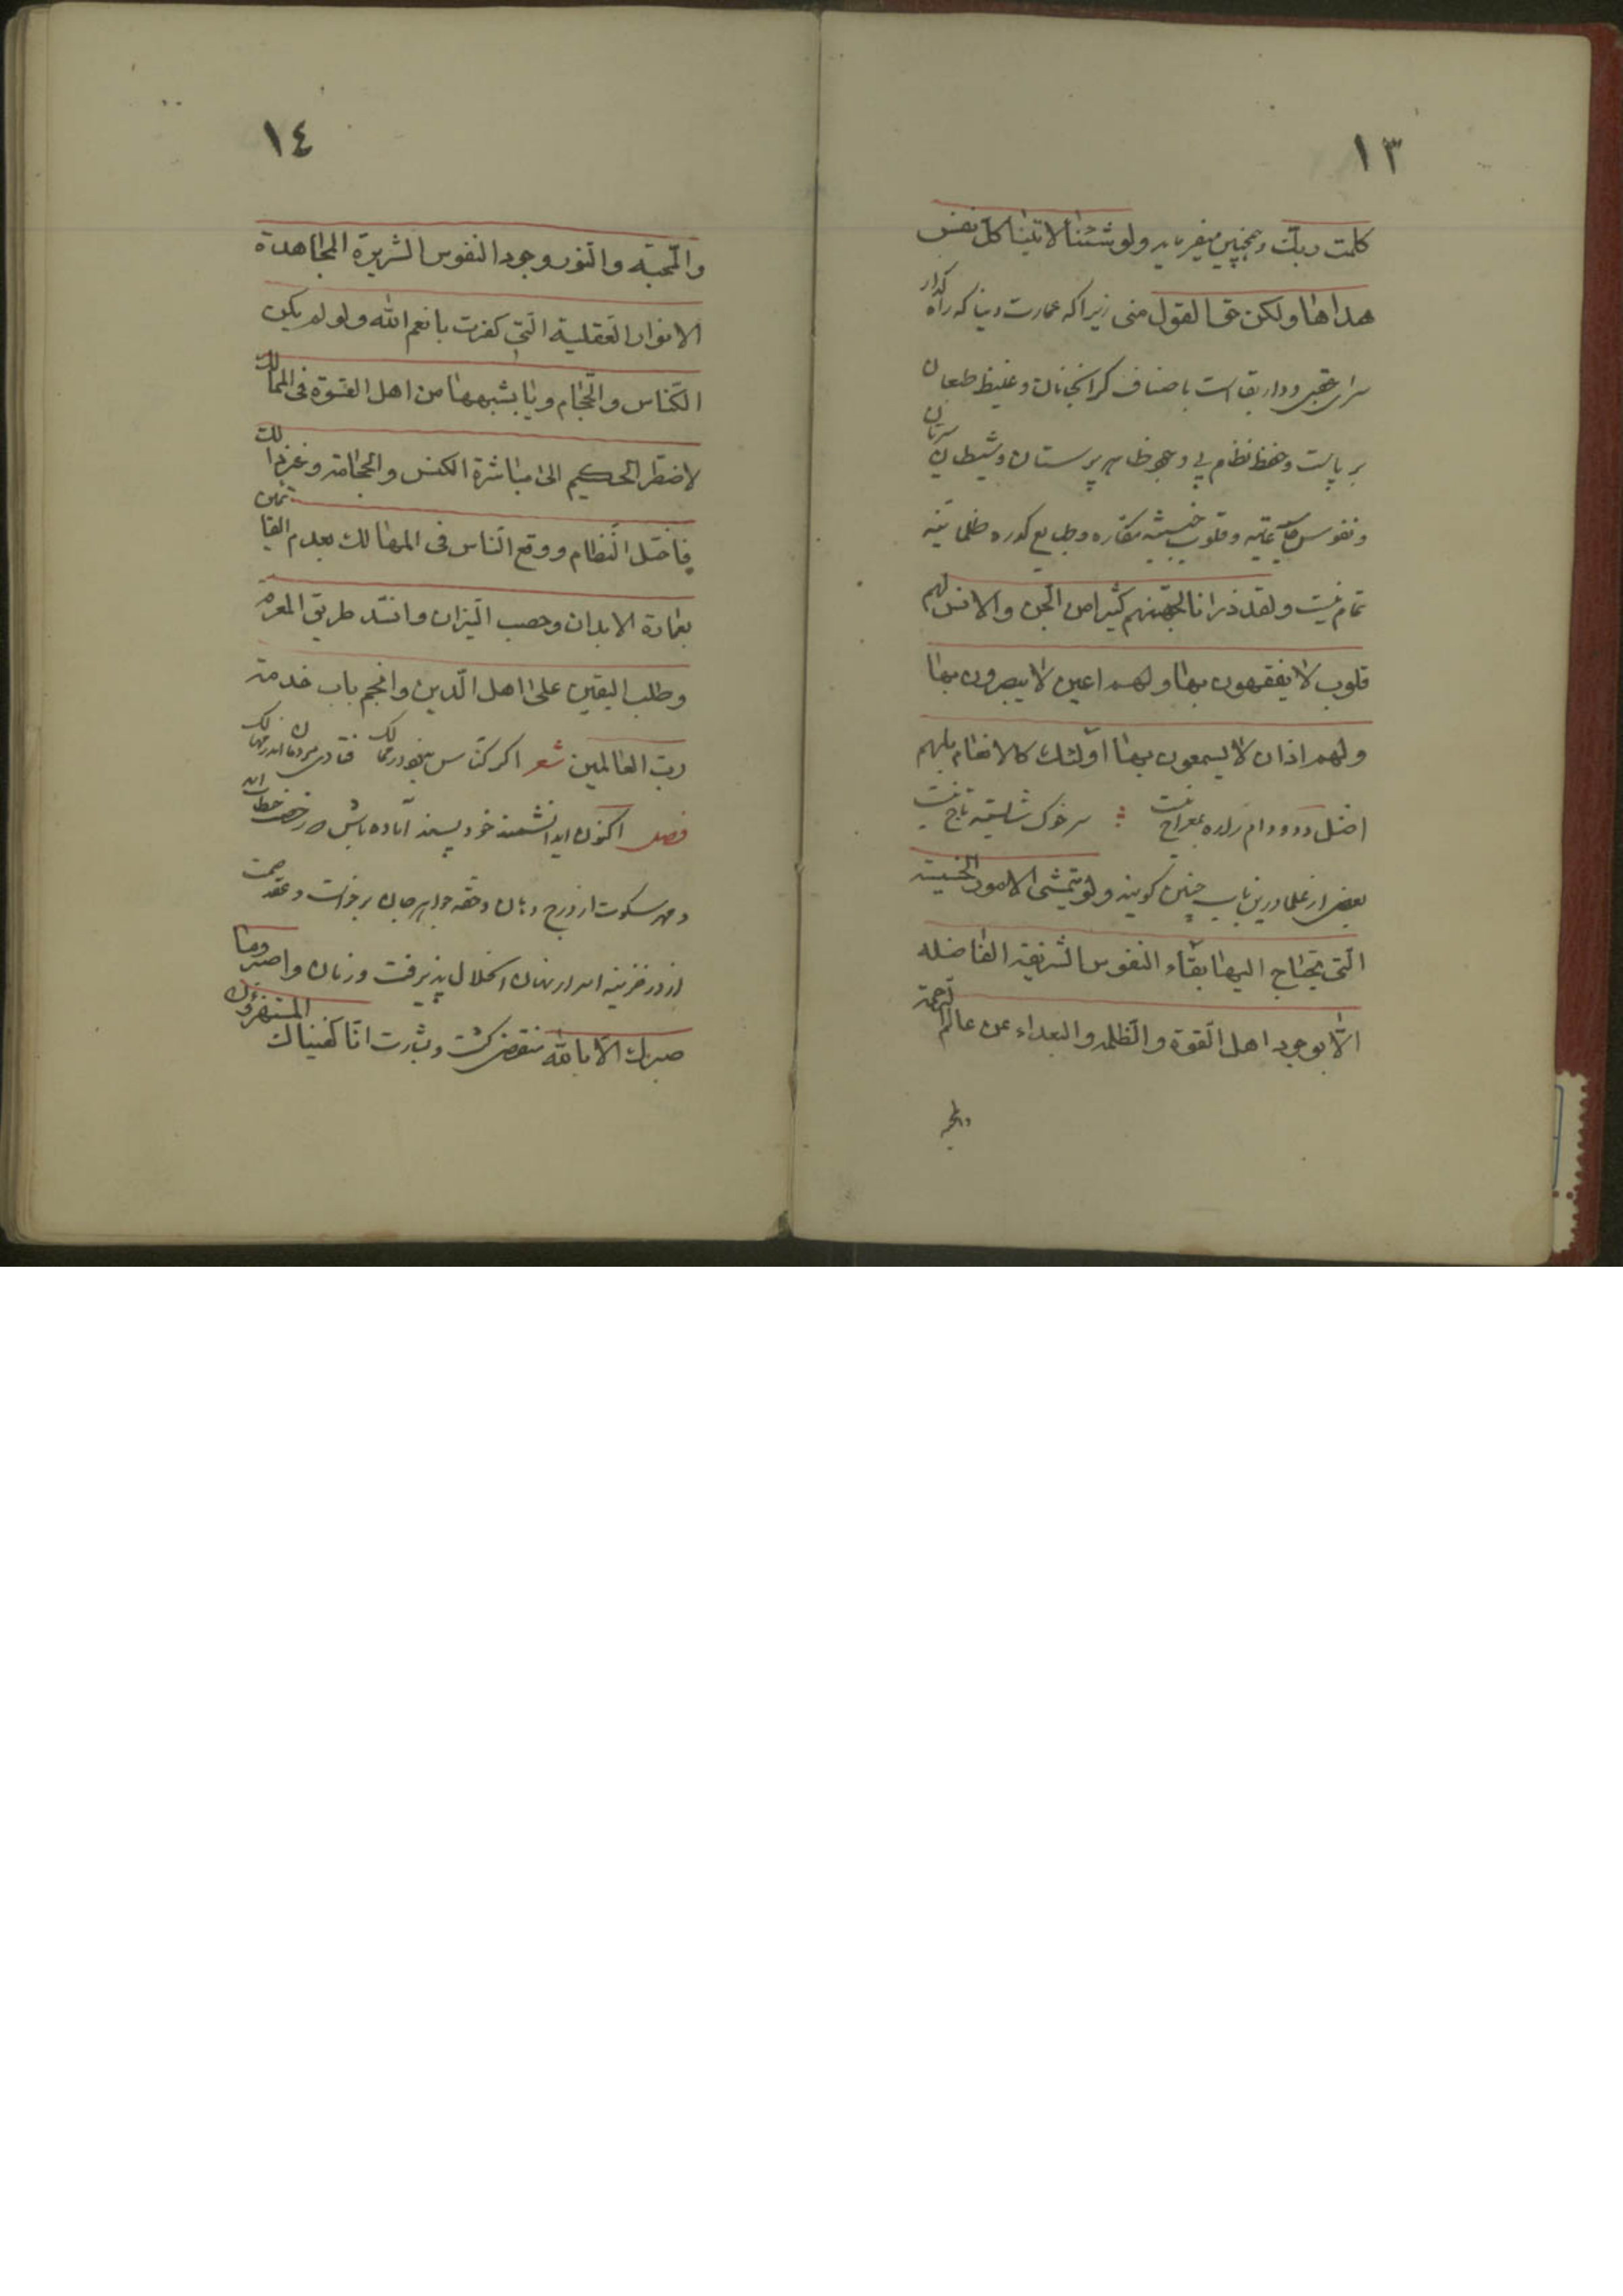 ١٣
كلمت ربك و همچنین میفرماید ولو شئنا لاتینا کل نفس
هداها ولكن حق القول منی زیرا که عمارت دنیا که راه گذار
سرای عقبی و دار بقاست باصناف گرانجانان و غلیظ طبعان
بر پاست و حفظ نظام بی وجود ظاهر پرستان و شیطان سرتان
و نفوس و قلوب خبیثه مکاره و طبایع کدره ظلمانیه
تمام نیست ولقد ذرانا لجهنم كثیرا من الجن والانس لهم
قلوب لا یفقهون بها ولهم اعین لا یبصرون بها
ولهم اذان لا یسمعون بها اولئك كالانعام بل هم
اضل دد و دام را ره بمعراج نیست سر خوک شایسته تاج نیست
بعض از علما درین باب چنین گویند ولو یتمشی الامور الخسیسة
التی یحتاج الیها بقاء النفوس الشریفة الفاضله
الا بوجود اهل القوة والظلمه والبعداء عن عالم الرحمة
١٤
والمحبة والنور وجود النفوس الشریرة المجاهدة
الانوار العقلیة التی كفرت بانعم الله ولو لم یكن
الكناس والحجام وما یشبهها من اهل القسوة فی الممالك
لاضطر الحكیم الی مباشرة الكنس والحجامة وغیر ذلك
فاختل النظام ووقع الناس فی المهالك بعدم القائمین
بعمارة الابدان وحصب النیران وانسد طریق المعرفة
وطلب الیقین علی اهل الدین وانجم باب خدمة
رب العالمین شعر اگر کناس نبود در ممالک فتادی مردمان اندر مهالک
فصل اکنون ای دانشمند خودپسند آماده باش که رخصت خطاب آمد
و مهر سکوت از درج دهان و حقه جواهر جان برخاست و عقد صمت
از در خزینه اسرار نهان انحلال پذیرفت و زمان واصبر وما
صبرك الا بالله منقضی گشت و بشارت انا كفیناك المستهزؤن